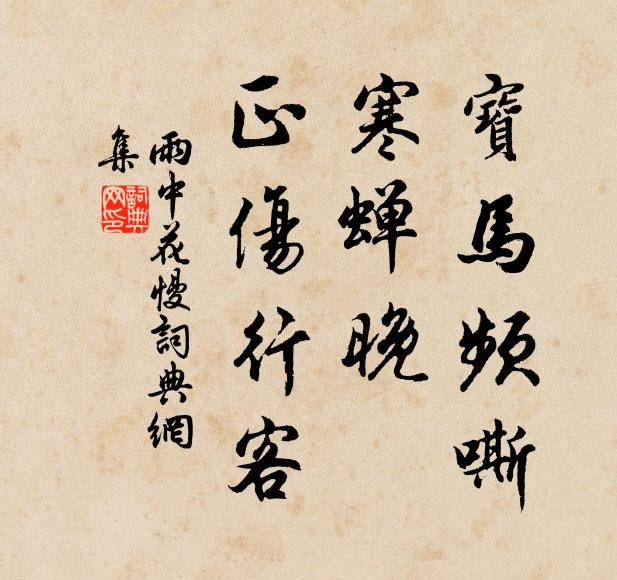 寶馬頻嘶
寒蟬晚
正傷行客
雨中花慢詞典網
集
詞典
网印